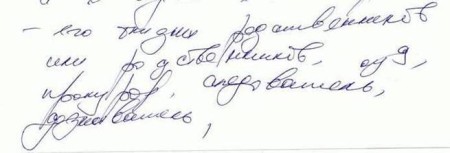 - его близких родственников
или родственников, суд,
прокурор, следователь,
дознаватель,